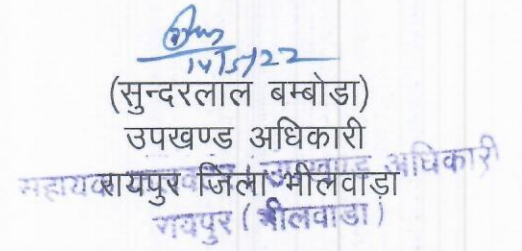 14/5/22
(सुन्दरलाल बम्बोडा)
उपखण्ड अधिकारी
रायपुर जिला भीलवाड़ा
सहायक उपखण्ड अधिकारी
रायपुर (भीलवाडा)